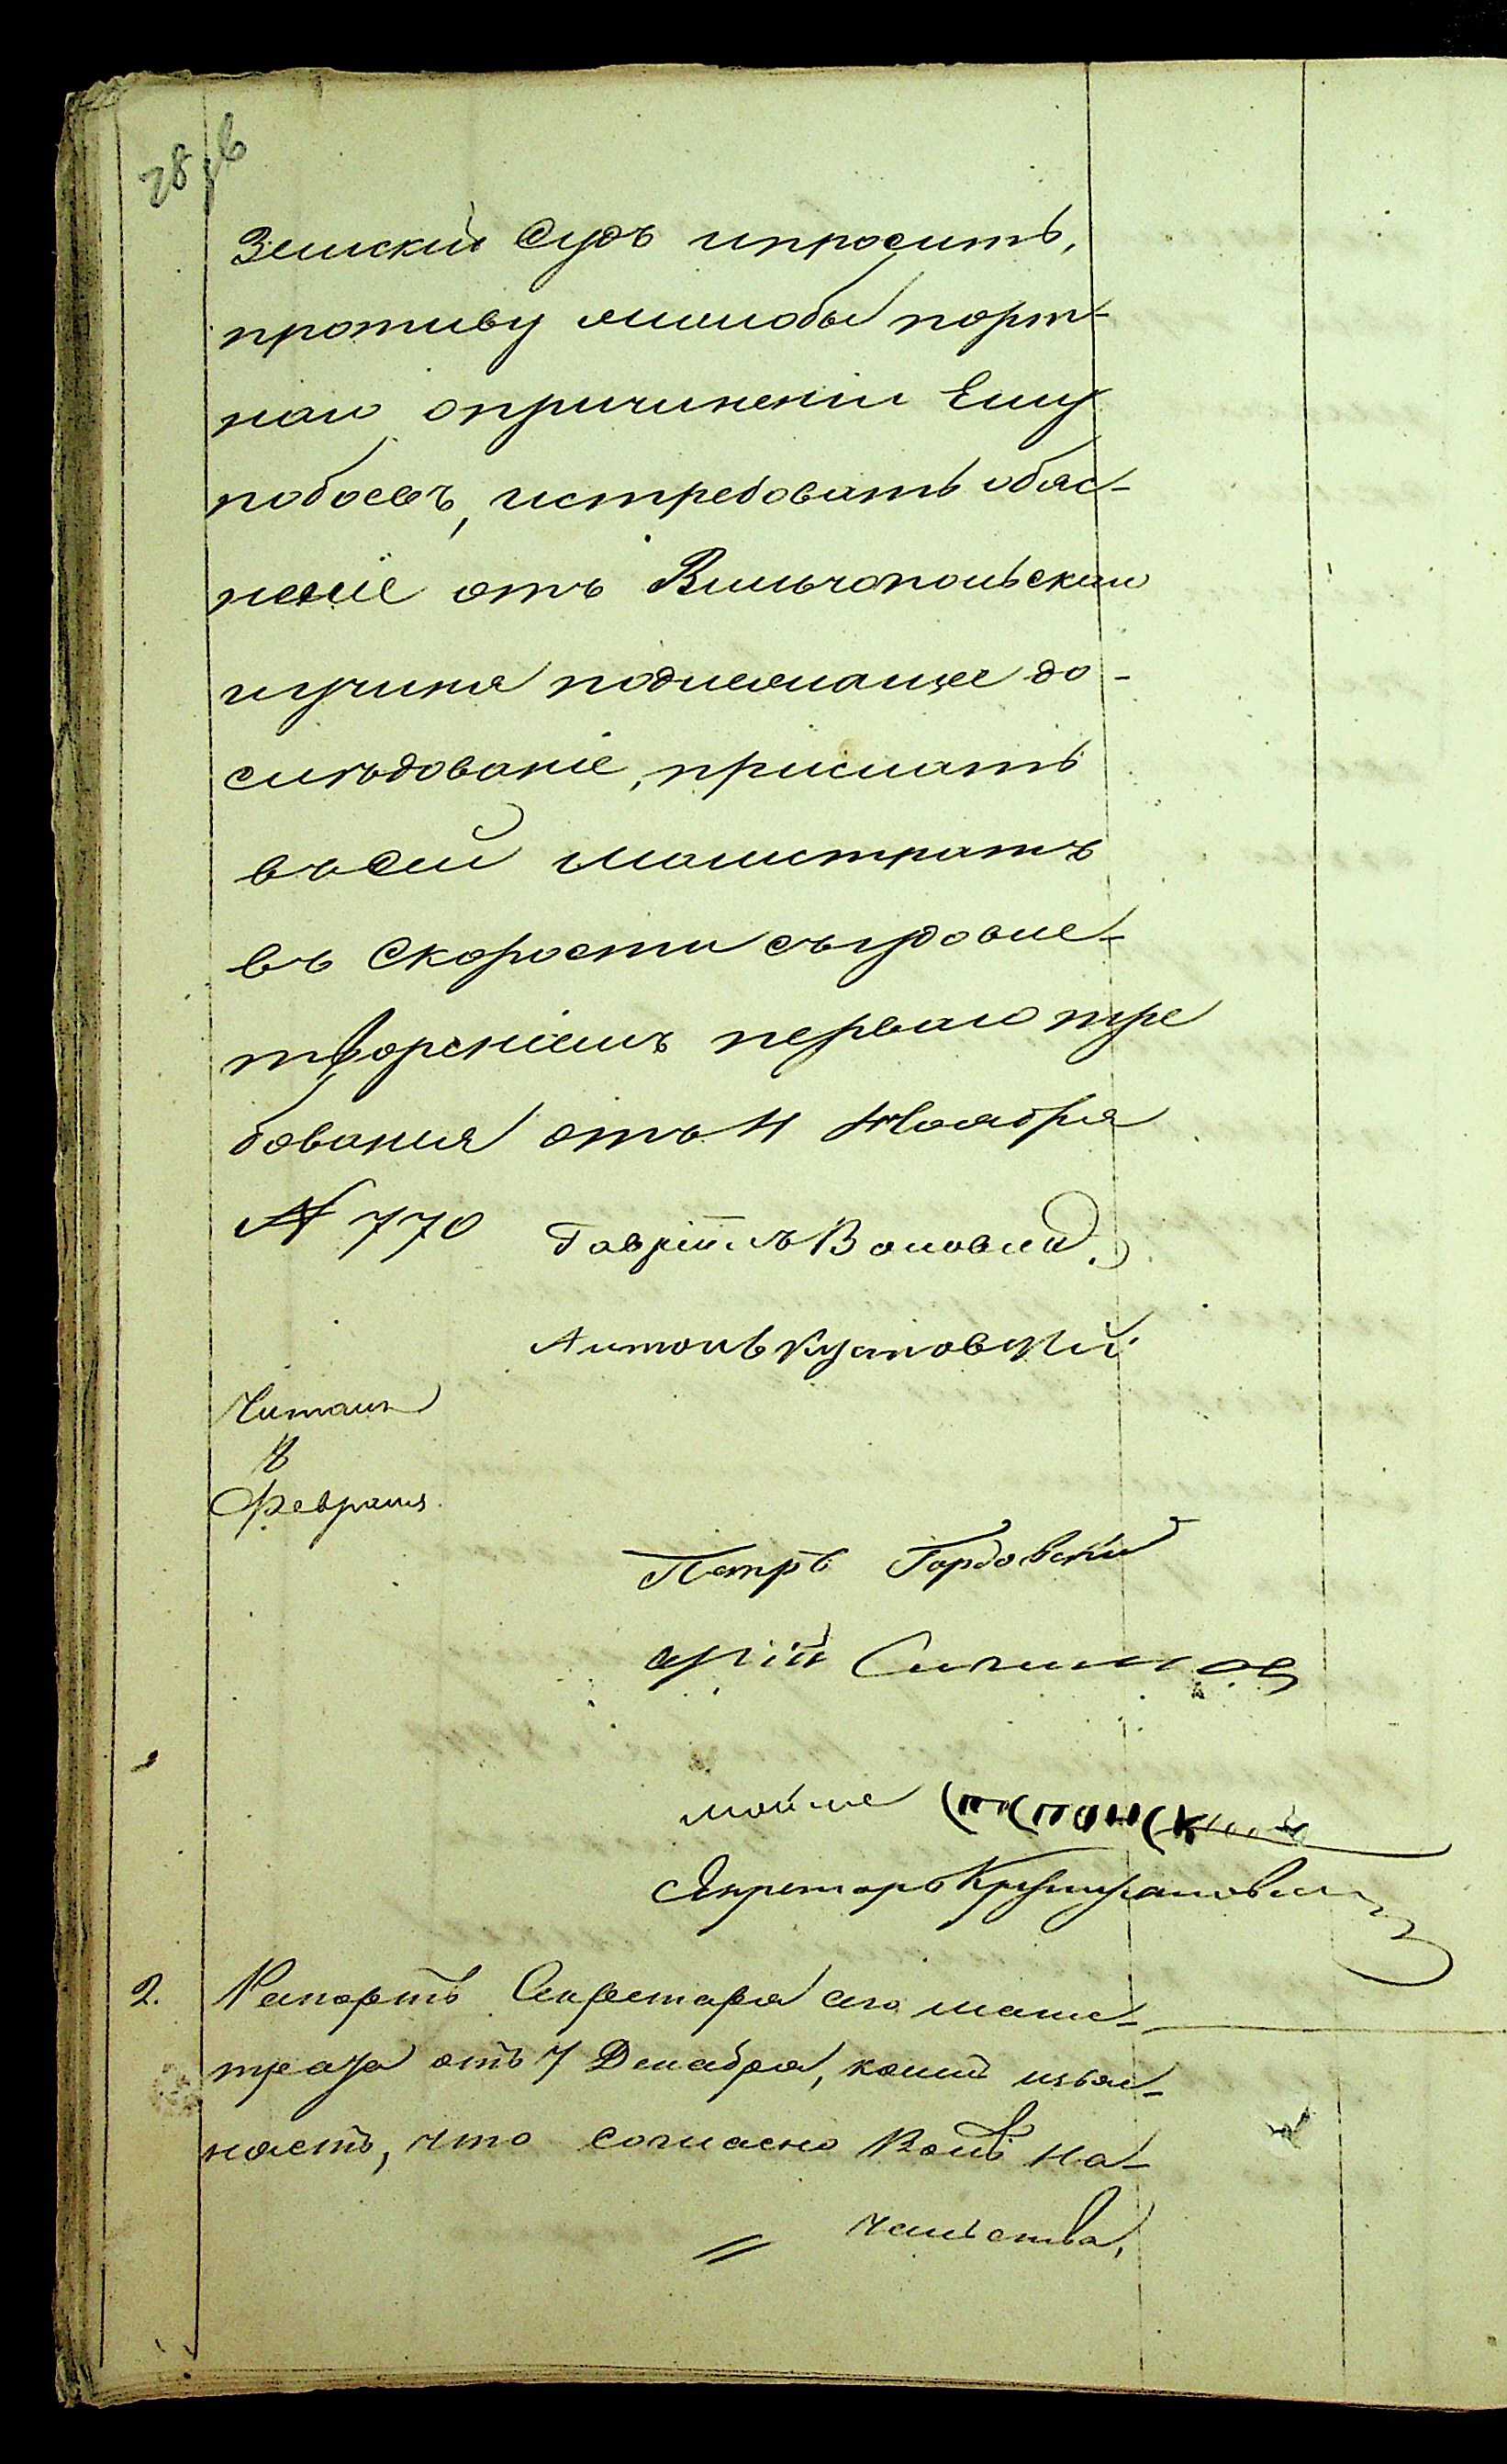 28 об
Земский Судъ и просить,
противу жалобы порт-
наго о причинении Ему
побоевъ, истребовать обяс-
нение отъ Вильчопольскаго
и учиня подлежащее до-
следование, прислать
въ сей Магистратъ
въ Скорости съ удовле-
твореніемъ перваго тре
бования отъ 11 Ноября
№ 770
Гавріилъ
Антонъ
Читалъ
8
Февраля
Петръ Гордовский
Секретарь
2.
Рапортъ Секретаря сего магис-
трата отъ 7 Декабря, коимъ изъяс-
няетъ, что согласно воли На-
чальства,